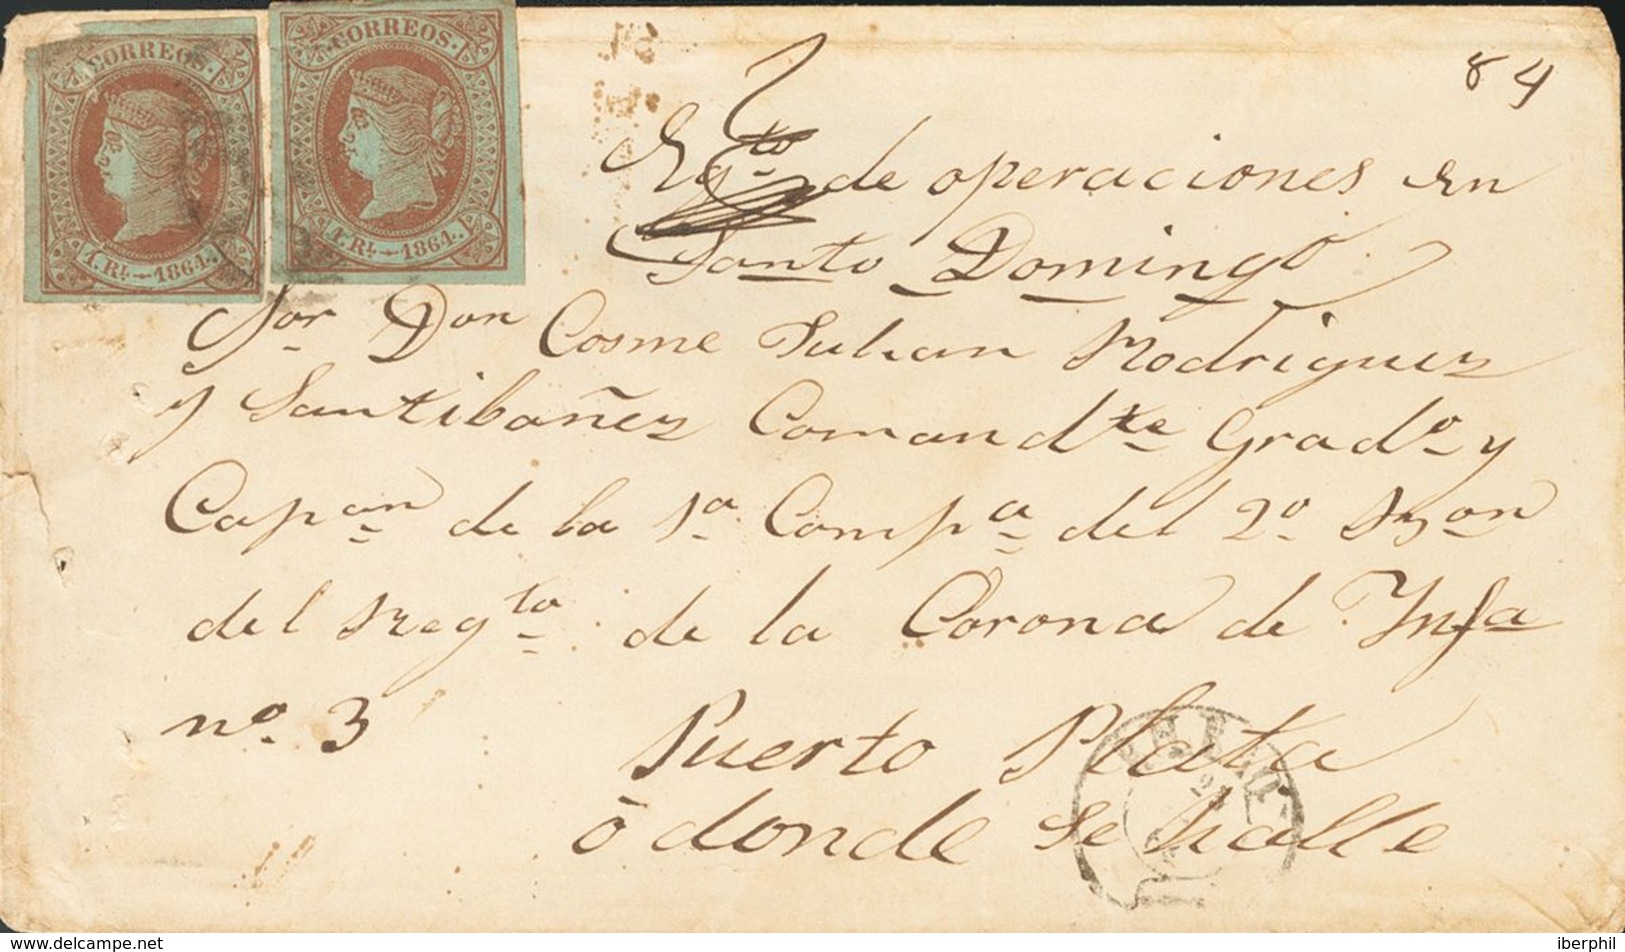 CORREOS.
1. RL. 1864.
CORREOS.
1. RL. 1864.
84
Egto de operaciones en
Santo Domingo
Sor Don Cosme Julian Rodriguez
y Santibañez Comandte Grado y
Capan de la 1a Compa del 2o
del Regto de la Corona de Infa
no 3
Puerto Plata
ó donde se halle
www.delcampe.net
iberphil